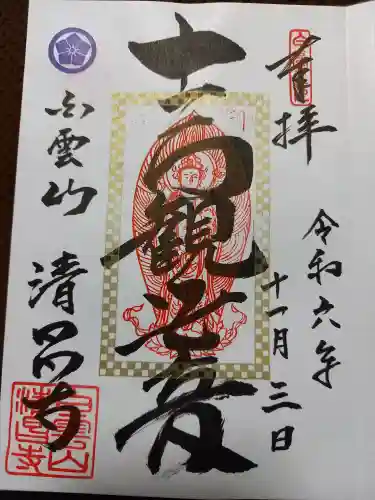 奉拝
令和六年
十一月三日
十一面観世音
白雲山
清昌寺